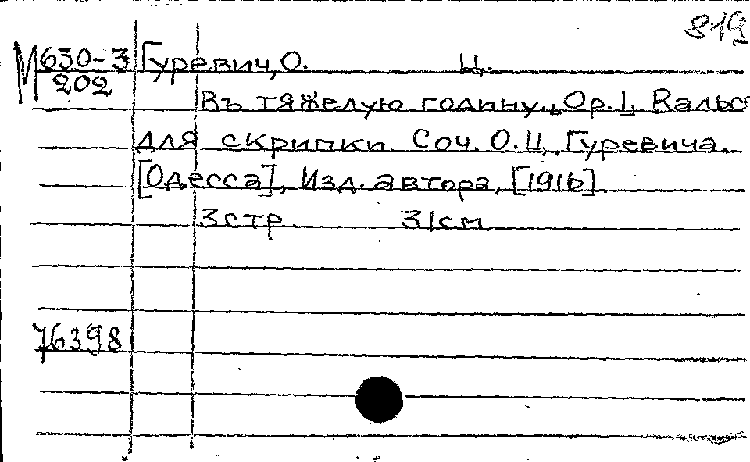 819
М 630-3 Гуревич, О. Ц.
202
Въ тяжелую годину. Ор. 1, Вальс
для скрипки. Соч. О. Ц. Гуревича.
[Одесса], Изд. автора, [1916].
3 стр. 31 см
76398